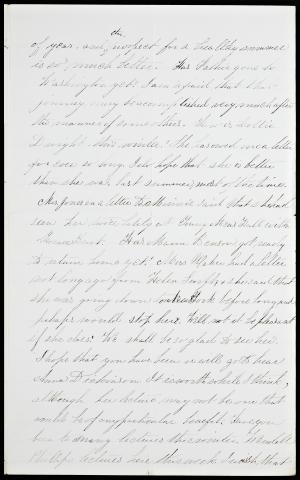 the
of year, and prospect for a healthy summer
is so much better. Has Father gone to
Washington yet? I am afraid that that
journey may be accomplished very much after
the manner of some others. How is Lottie
Dwight this winter? She owed me a letter
for ever so long. I do hope that she is better
than she was last summer, most of the time.
Mrs Jonson a little said that she had
seen her twice lately at Henry Hall with
Has Miriam got ready
to return home yet? Mrs had a letter
not long ago from Helen she said that
she was going down to New York before long and
perhaps would stop here. Will not it be pleasant
if she does? We shall be so glad to see her.
I hope that you have been or will go to hear
Anna Dickinson. It is worth while I think,
although her lecture may not be one that
would be of any particular benefit. Have you
been to many lectures this winter. Wendell
Phillips lectures here this week. I wish that